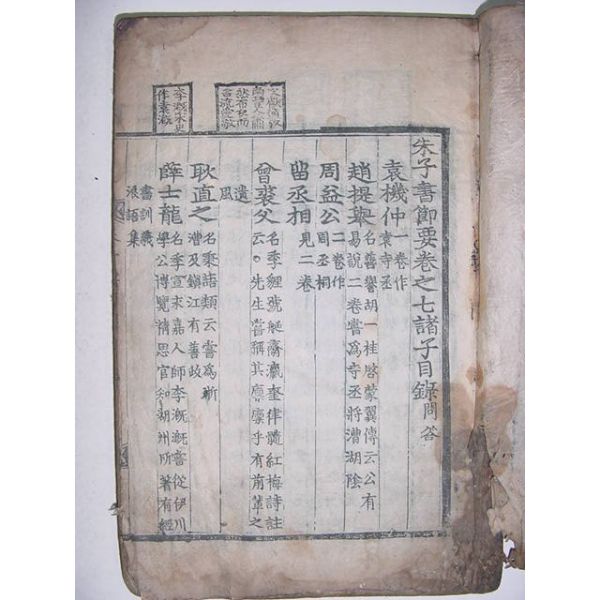 朱子書節要卷之七諸子目錄 問答
袁機仲 一卷作袁寺丞
趙提擧 名善譽胡一桂啓蒙翼傳云公有
易說二卷嘗爲寺丞將漕湖陰
周益公 二卷作周丞相
留丞相 見二卷
曾裘父 名季貍號艇齋瀛奎律髓紅梅詩註
云○先生嘗稱其廪廪乎有前輩之
遺風
耿直之 名秉語類云嘗爲浙
漕及鎭江有善政
薛士龍 名季宣永嘉人師李漑漑嘗從伊川
學公博覽精思官知湖州所著有經
書訓義
浪語集
李漑宋史
作袁漑